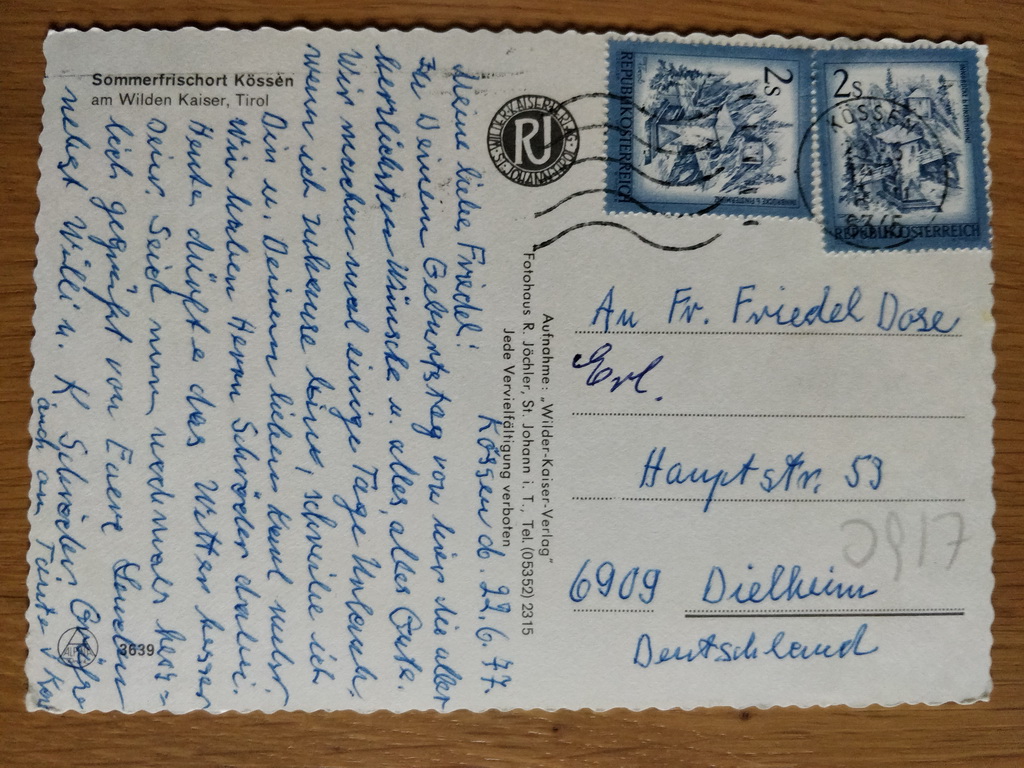 Sommerfrischort Kössen
am Wilden Kaiser, Tirol
Kössen d. 22.6.77.
Meine liebe Friedel!
Zu Deinem Geburtstag von hier die aller
herzlichsten Wünsche u. alles, alles Gute.
Wir machen mal einige Tage Urlaub.
wenn ich zuhause bin, schreibe ich
Dir u. Deinem lieben Karl mehr.
Wir haben Herrn Schröder dabei.
Heute dürfte das Wetter besser
sein. Seid nun nochmals herz=
lich gegrüßt von Euern
nebst Willi u. K Schröder Grüße
auch an Tante
Aufnahme: „Wilder-Kaiser-Verlag"
Fotohaus R. Jöchler, St. Johann i. T., Tel. (05352) 2315
Jede Vervielfältigung verboten
WILDER-KAISER-VERLAG
ST. JOHANN-TIROL
RJ
3639
2s
REPUBLIK ÖSTERREICH
2s
REPUBLIK ÖSTERREICH
KÖSSEN
An Fr. Friedel Dose
Erl.
Hauptstr. 53
6909 Dielheim
Deutschland